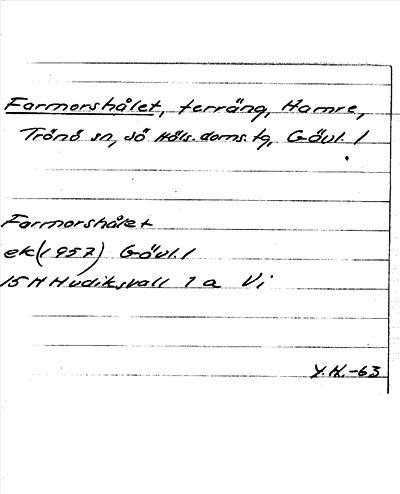 Farmorshålet, terräng, Hamre,
Trönö sn, sö Häls. doms. tg, Gävl. l
Farmorshålet
ek(1957) Gävl. l
15 H Hudiksvall 1 a Vi
Y.H.-63